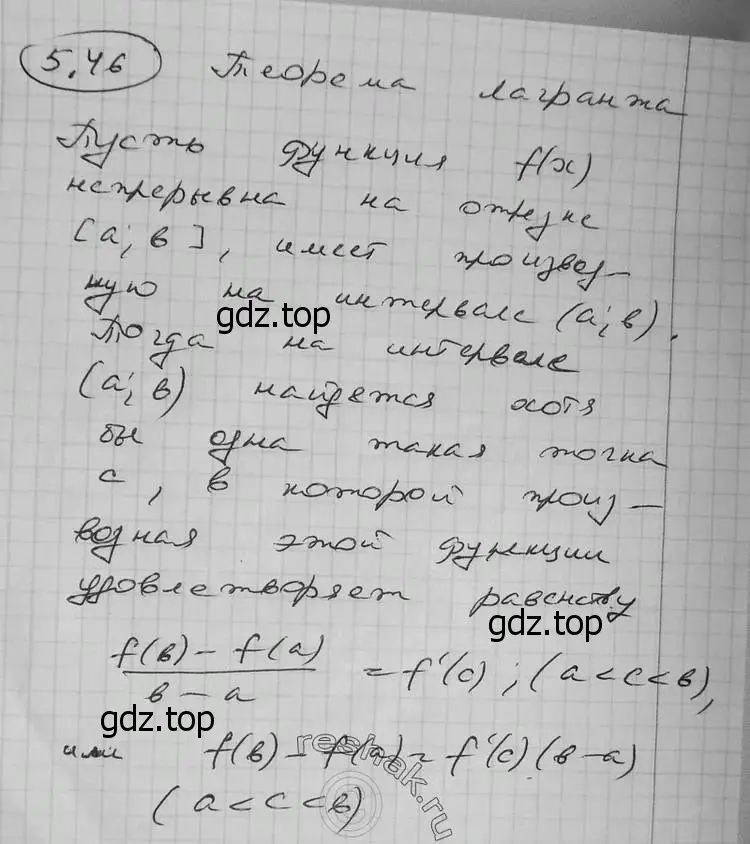 5.46 Теорема Лагранжа
Пусть функция f(x)
непрерывна на отрезке
[a; в], имеет производ-
ную на интервале (a; в).
gdz.top
Тогда на интервале
(a; в) найдется хотя
бы одна такая точка
с, в которой произ-
водная этой функции
удовлетворяет равенству
gdz.top
f(в) - f(a) / в - a = f'(c); (a < c < в),
gdz.top
или f(в) - f(a) = f'(c)(в - a)
(a < c < в)
reshak.ru